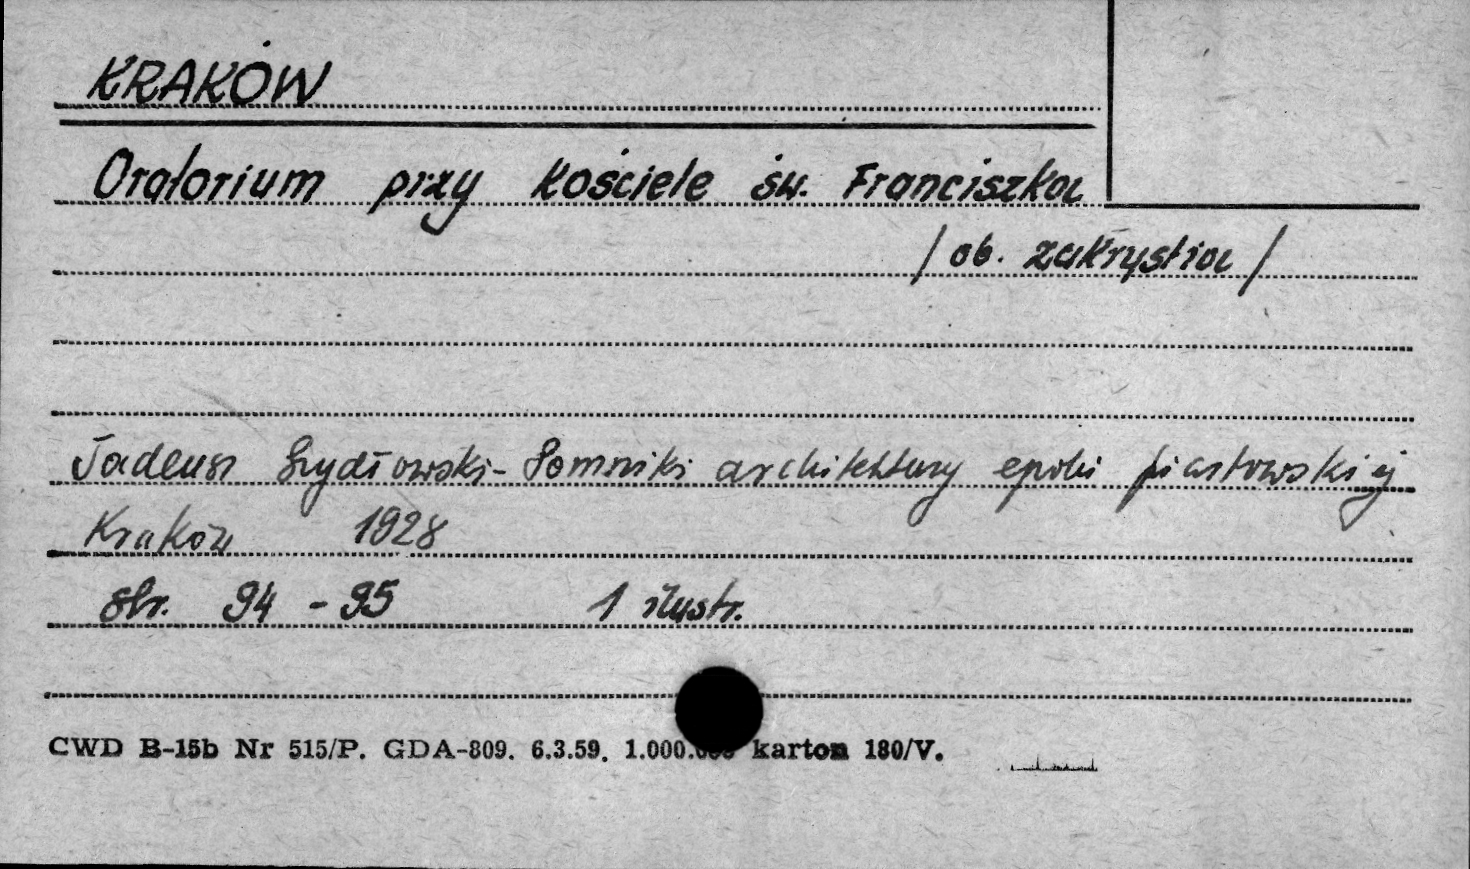 KRAKÓW
Oratorium przy kościele św. Franciszka
/ ob. zakrystia /
Tadeusz Szydłowski - Pomniki architektury epoki piastowskiej
Kraków 1928
str. 94 - 95 1 ilustr.
CWD B-15b Nr 515/P. GDA-809. 6.3.59. 1.000.000 karton 180/V.